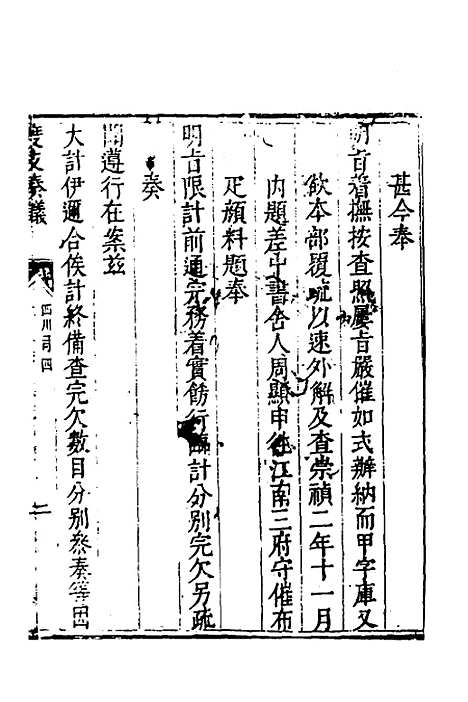 甚今奉
明旨着撫按查照屢旨嚴催如式辦納而甲字庫又
飲本部覆疏以速外解及查崇禎二年十一月
内題差中書舍人周顯申往江南三府守催布
疋顔料題奉
明旨限計前通完務着實飭行臨計分別完欠另疏
奏
聞遵行在案兹
大計伊邇合俟計終備查完欠數目分別叅奏等因
度支奏議
四川司四
二